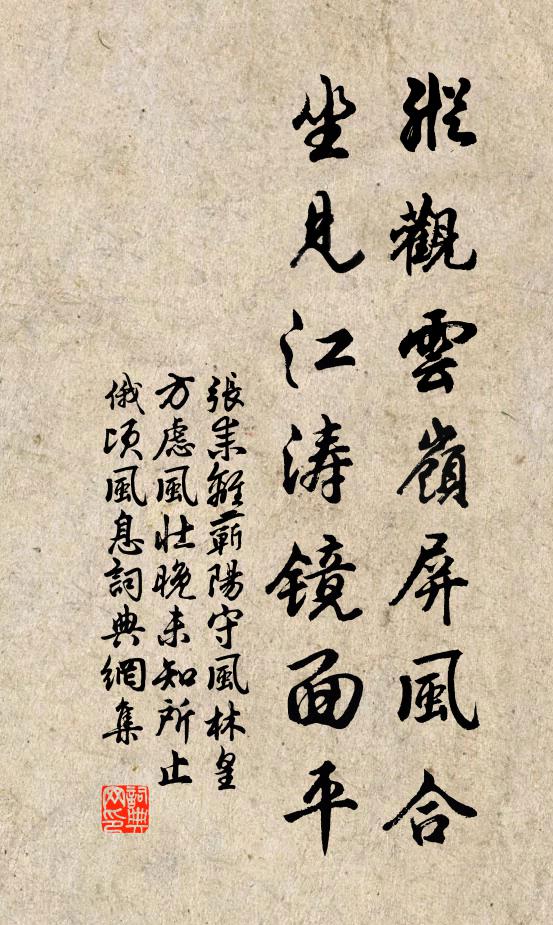 縱觀雲嶺屏風合
坐見江濤鏡面平
張耒離蘄陽守風林皇
方慮風壯晚未知所止
俄頃風息詞典網集
詞典
网印